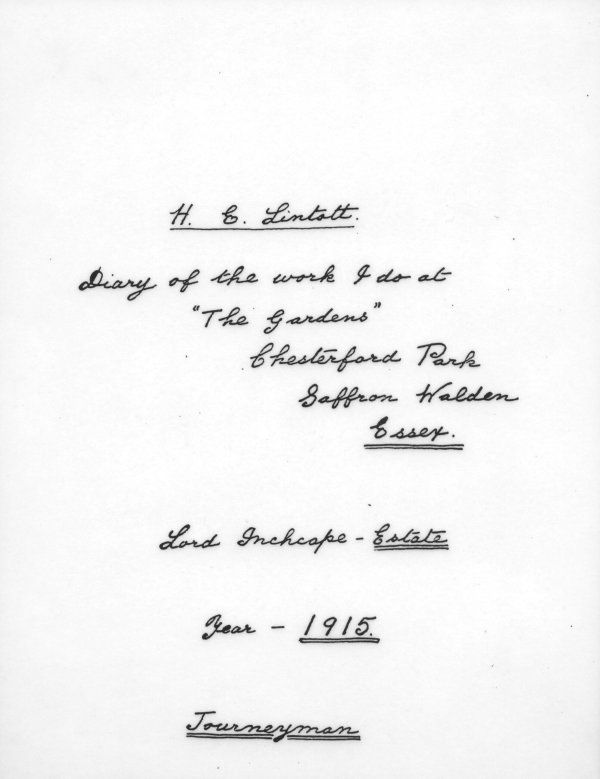 H. E. Lintott.
Diary of the work I do at
"The Gardens"
Chesterford Park
Saffron Walden
Essex.
Lord Inchcape - Estate
Year - 1915.
Journeyman